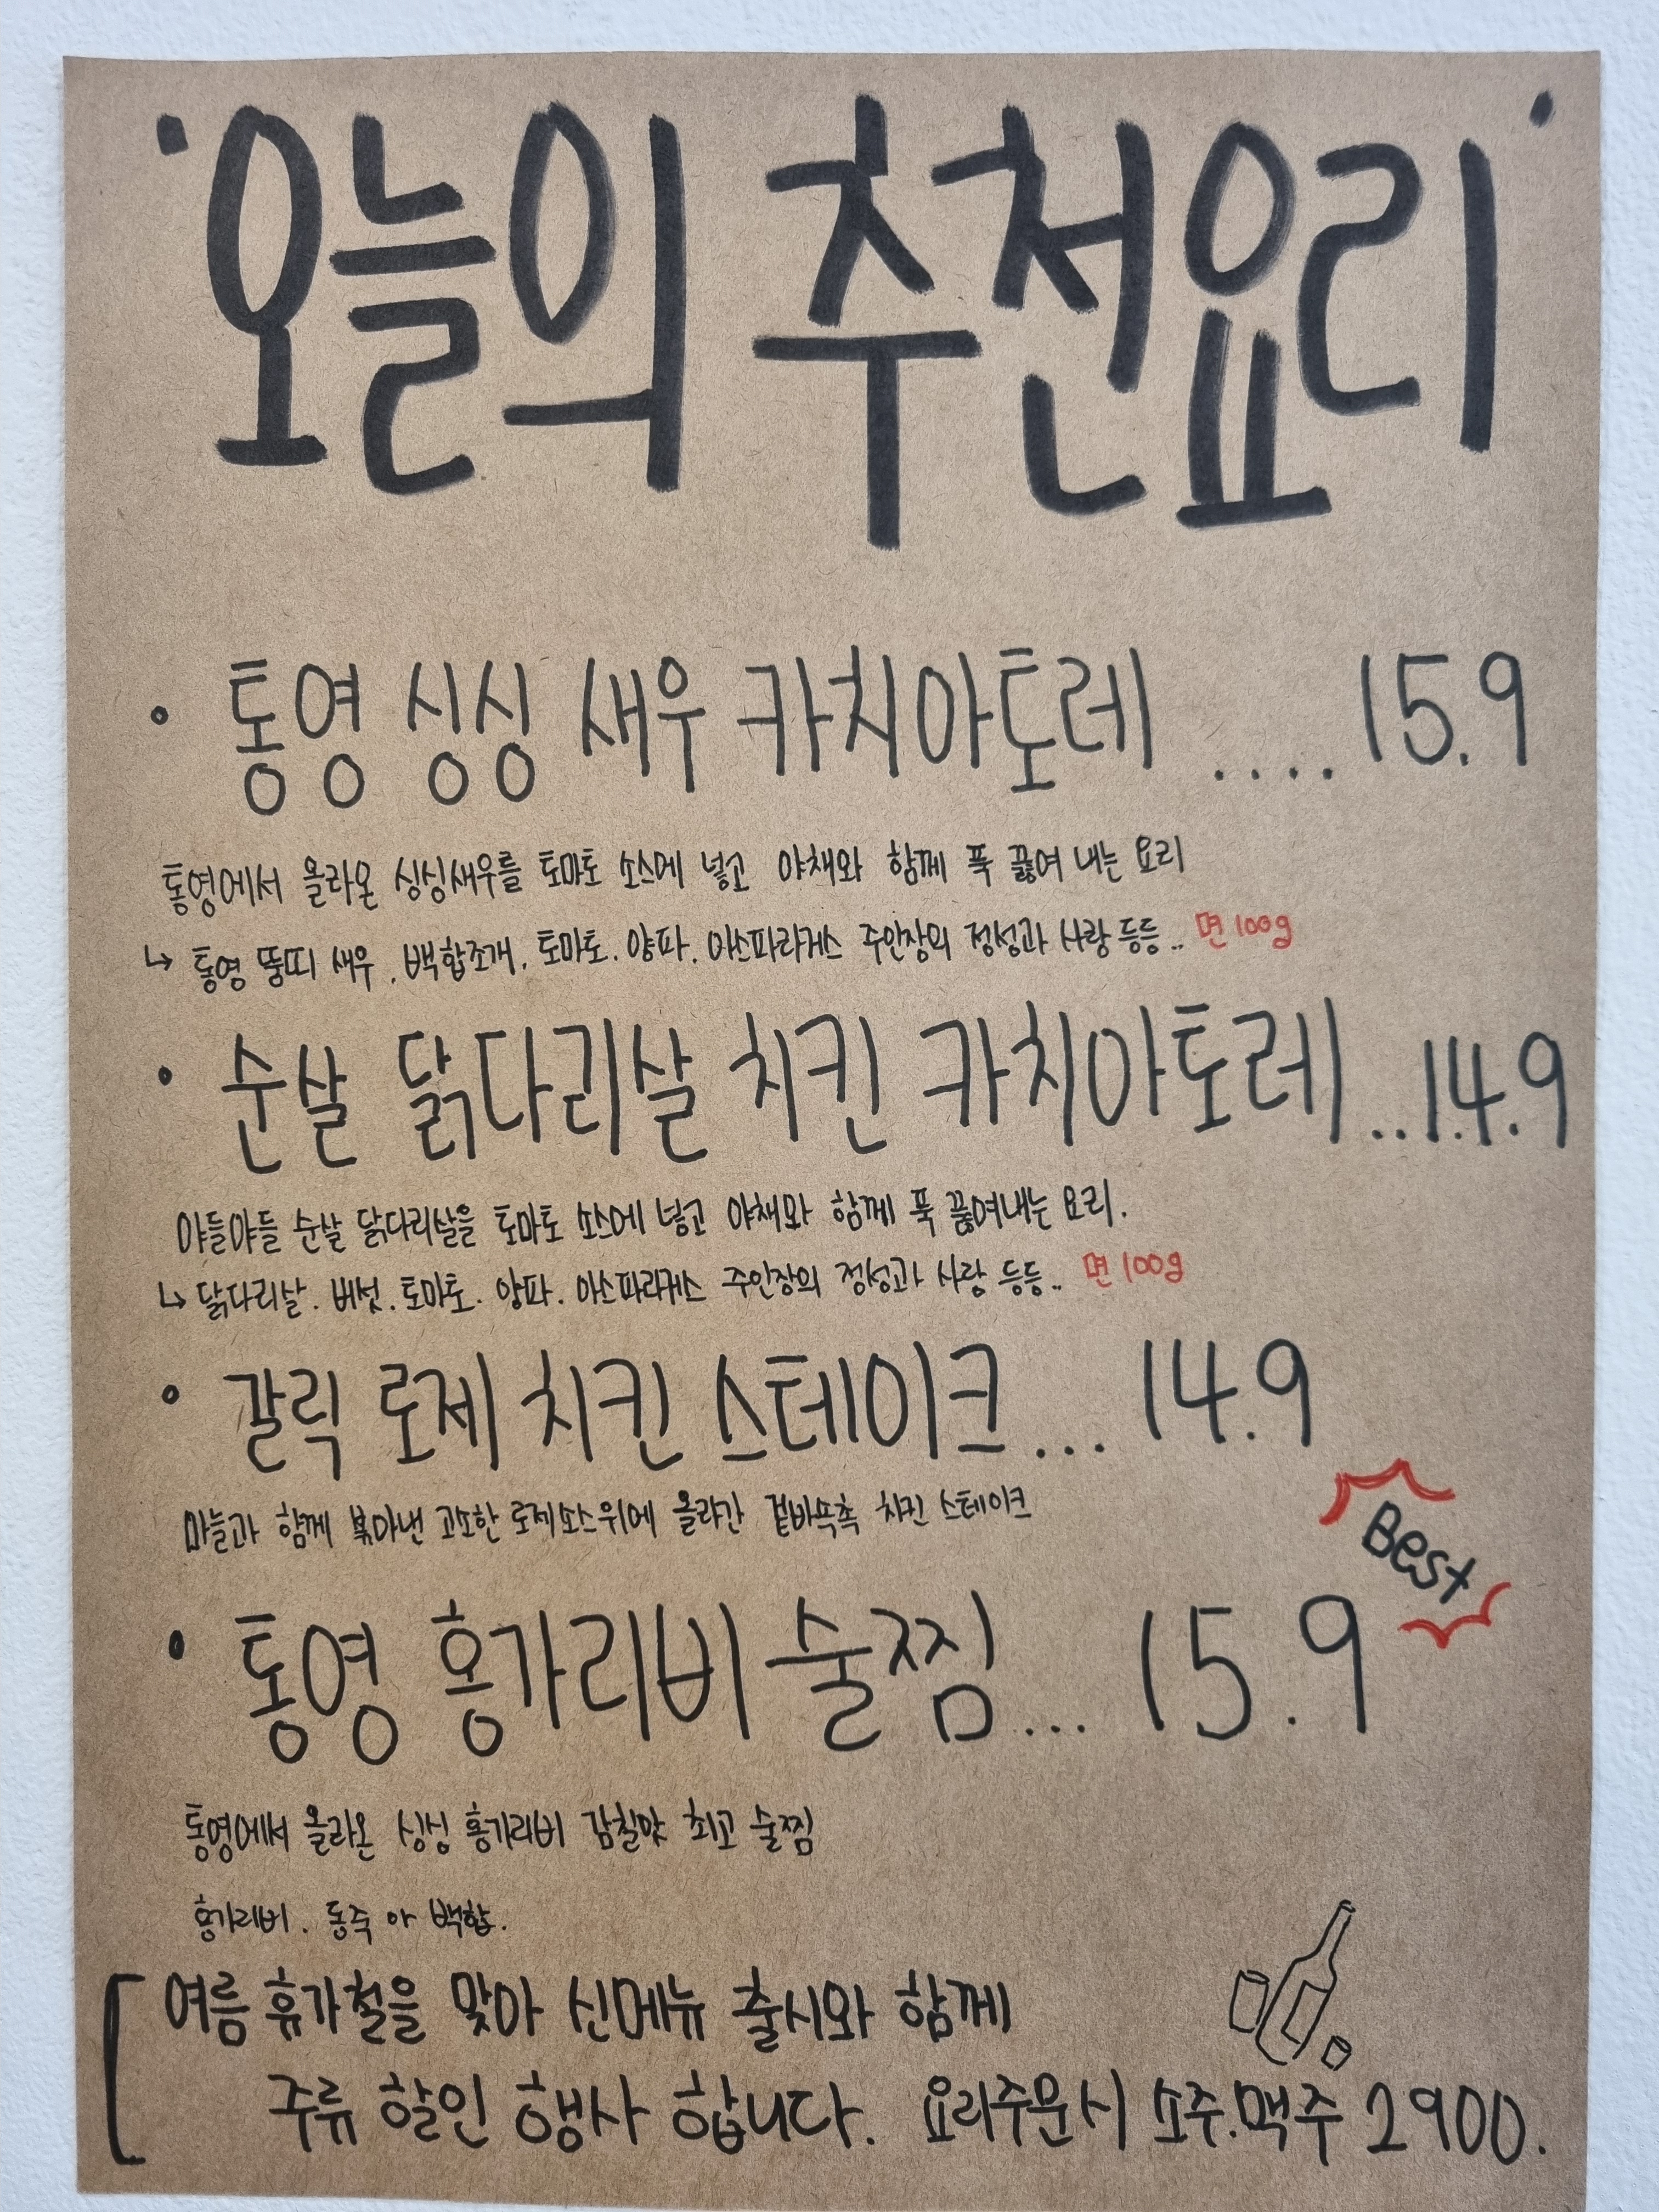 '오늘의 추천요리'
통영 싱싱 새우 카치아토레 ....15.9
통영에서 올라온 싱싱새우를 토마토 소스에 넣고 야채와 함께 푹 끓여 내는 요리
↳ 통영 뚱띠 새우. 백합조개. 토마토. 양파. 아스파라거스 주인장의 정성과 사랑 등등.. 면 100g
순살 닭다리살 치킨 카치아토레..14.9
야들야들 순살 닭다리살을 토마토 소스에 넣고 야채와 함께 푹 끓여내는 요리.
↳ 닭다리살. 버섯. 토마토. 양파. 아스파라거스 주인장의 정성과 사랑 등등.. 면 100g
갈릭 로제 치킨 스테이크... 14.9
마늘과 함께 볶아낸 고소한 로제소스위에 올라간 겉바속촉 치킨 스테이크
Best
통영 홍가리비 술찜... 15.9
통영에서 올라온 싱싱 홍가리비 감칠맛 최고 술찜
홍가리비. 동죽 백합.
여름 휴가철을 맞아 신메뉴 출시와 함께
주류 할인 행사 합니다. 요리주문시 소주.맥주 2900.